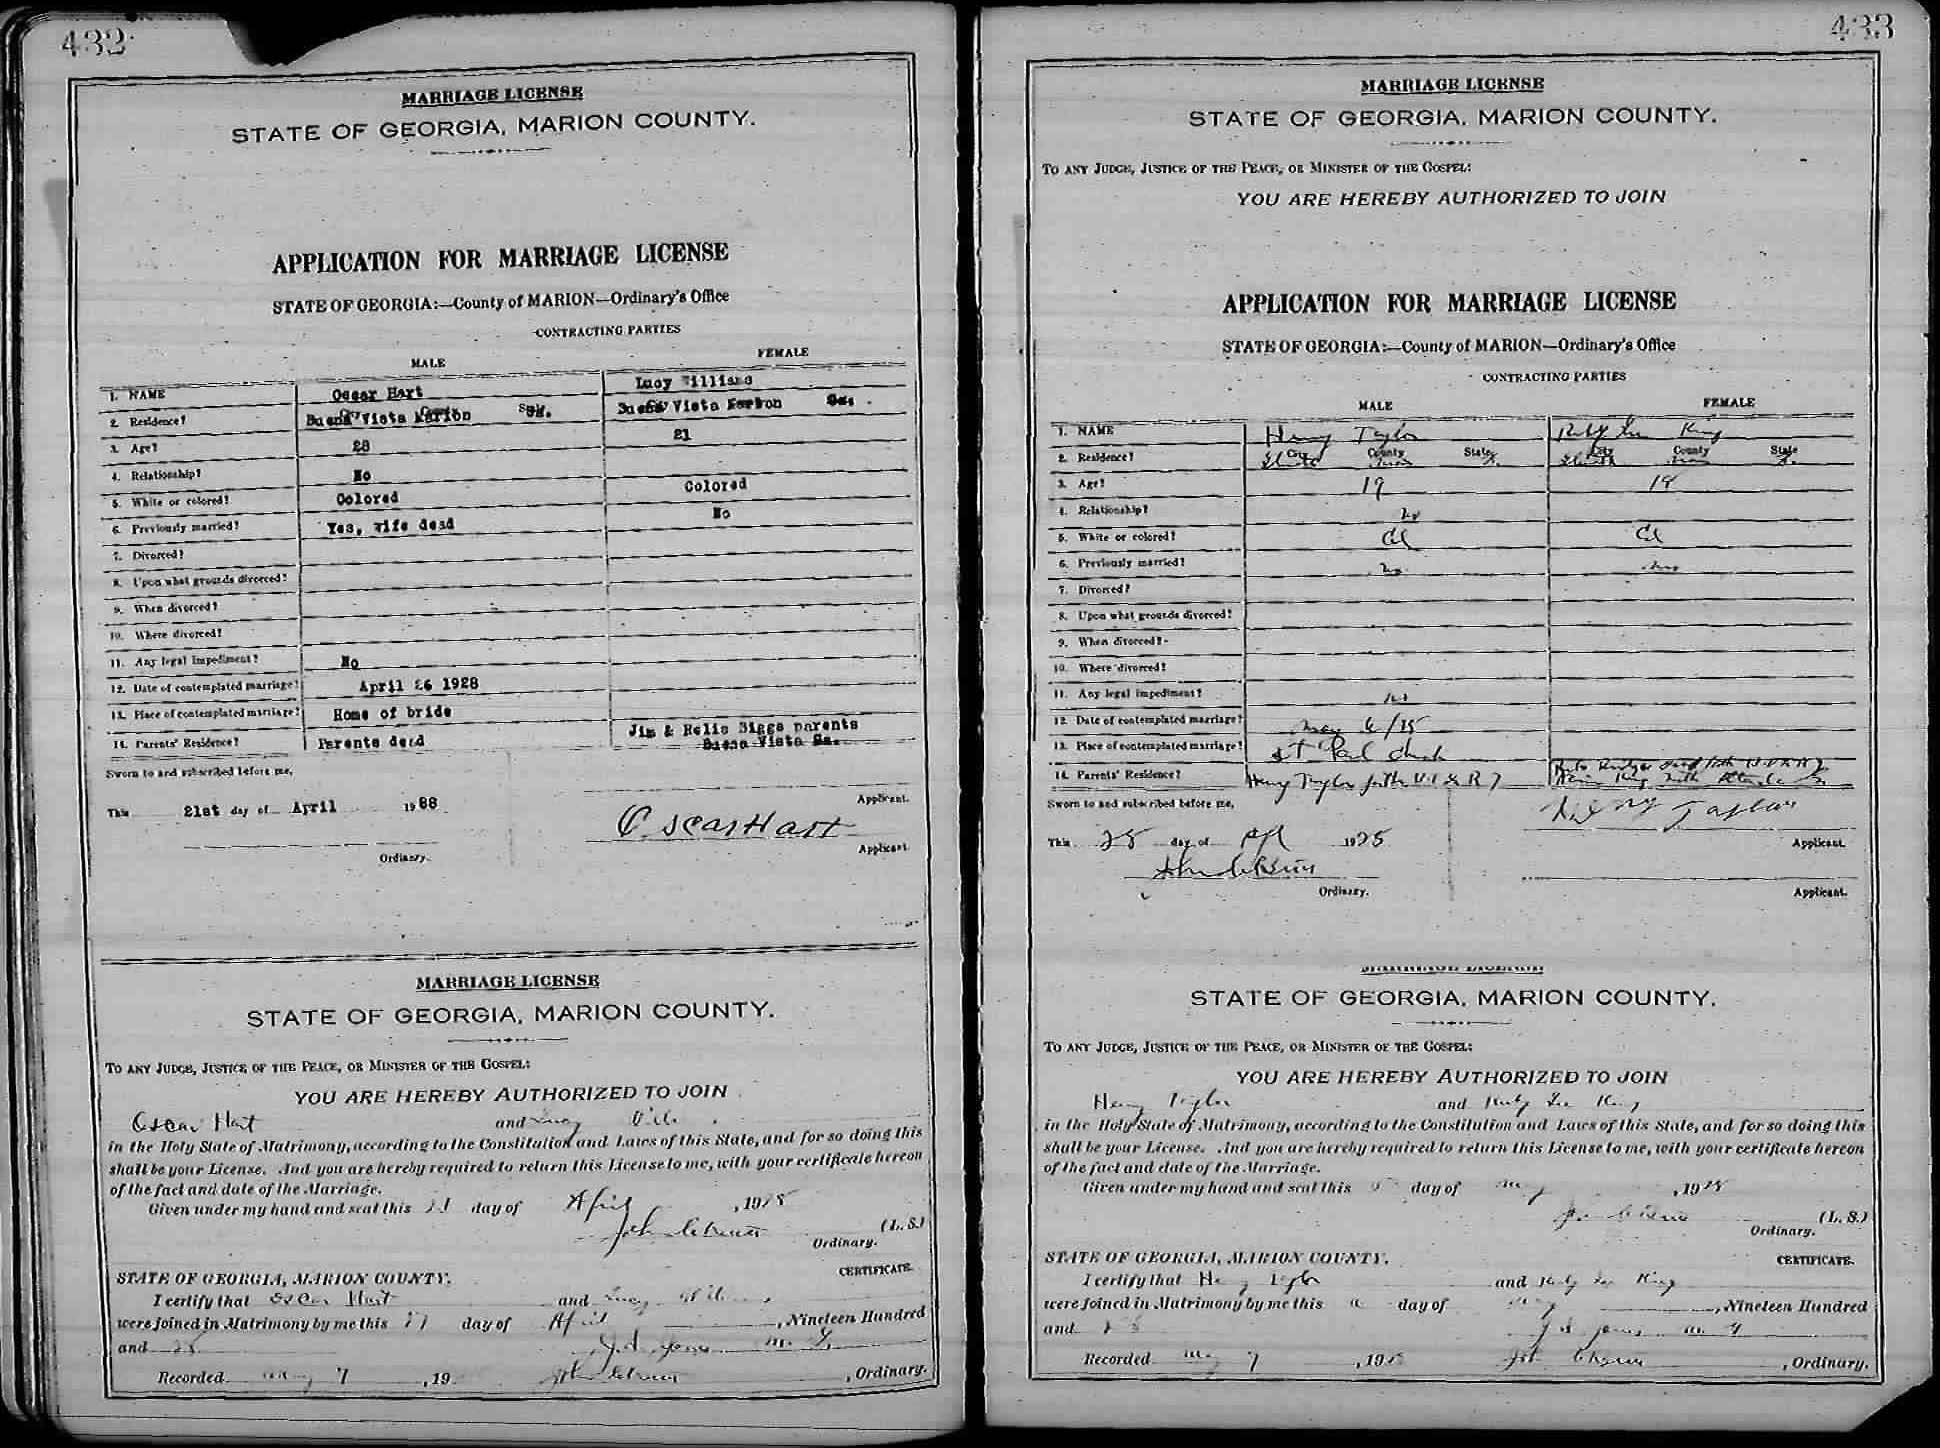 432
MARRIAGE LICENSE
STATE OF GEORGIA, MARION COUNTY.
APPLICATION FOR MARRIAGE LICENSE
STATE OF GEORGIA:—County of MARION—Ordinary's Office
CONTRACTING PARTIES
MALE FEMALE
1. NAME Oscar Hart Lucy Williams
2. Residence? City County State Buena Vista Marion Ga. Buena Vista Marion Ga.
3. Age? 28 21
4. Relationship? No
5. White or colored? Colored Colored
6. Previously married? Yes, wife dead No
7. Divorced?
8. Upon what grounds divorced?
9. When divorced?
10. Where divorced?
11. Any legal impediment? No
12. Date of contemplated marriage? April 26 1928
13. Place of contemplated marriage? Home of bride
14. Parents' Residence? Parents dead Jim & Relia Biggs parents
Buena Vista Ga.
Sworn to and subscribed before me,
Applicant.
This 21st day of April 1988
Oscar Hart
Ordinary. Applicant.
MARRIAGE LICENSE
STATE OF GEORGIA, MARION COUNTY.
TO ANY JUDGE, JUSTICE OF THE PEACE, OR MINISTER OF THE GOSPEL:
YOU ARE HEREBY AUTHORIZED TO JOIN
Oscar Hart and Lucy
in the Holy State of Matrimony, according to the Constitution and Laws of this State, and for so doing this
shall be your License. And you are hereby required to return this License to me, with your certificate hereon
of the fact and date of the Marriage.
Given under my hand and seal this 21 day of April, 1928
(L. S.)
Ordinary.
CERTIFICATE.
STATE OF GEORGIA, MARION COUNTY.
I certify that Oscar Hart and Lucy
were joined in Matrimony by me this day of April, Nineteen Hundred
and 28 J. S. Jones M. G.
Recorded May 7, 19 John, Ordinary.
433
MARRIAGE LICENSE
STATE OF GEORGIA, MARION COUNTY.
TO ANY JUDGE, JUSTICE OF THE PEACE, OR MINISTER OF THE GOSPEL:
YOU ARE HEREBY AUTHORIZED TO JOIN
APPLICATION FOR MARRIAGE LICENSE
STATE OF GEORGIA:—County of MARION—Ordinary's Office
CONTRACTING PARTIES
MALE FEMALE
1. NAME Henry Taylor Ruby Lee King
2. Residence? City County State City County State
3. Age? 19 18
4. Relationship? no
5. White or colored? Col Col
6. Previously married? no no
7. Divorced?
8. Upon what grounds divorced?
9. When divorced?
10. Where divorced?
11. Any legal impediment? no
12. Date of contemplated marriage? May 6/28
13. Place of contemplated marriage? St Paul church
14. Parents' Residence? Henry Taylor
Sworn to and subscribed before me,
Henry Taylor
This 28 day of Apl 1928 Applicant.
Ordinary. Applicant.
MARRIAGE LICENSE
STATE OF GEORGIA, MARION COUNTY.
TO ANY JUDGE, JUSTICE OF THE PEACE, OR MINISTER OF THE GOSPEL:
YOU ARE HEREBY AUTHORIZED TO JOIN
Henry Taylor and Ruby Lee King
in the Holy State of Matrimony, according to the Constitution and Laws of this State, and for so doing this
shall be your License. And you are hereby required to return this License to me, with your certificate hereon
of the fact and date of the Marriage.
Given under my hand and seal this day of May, 1928
(L. S.)
Ordinary.
STATE OF GEORGIA, MARION COUNTY. CERTIFICATE.
I certify that Henry Taylor and Ruby Lee King
were joined in Matrimony by me this day of May, Nineteen Hundred
and 28 J S Jones M G
Recorded May 7, 1928, Ordinary.